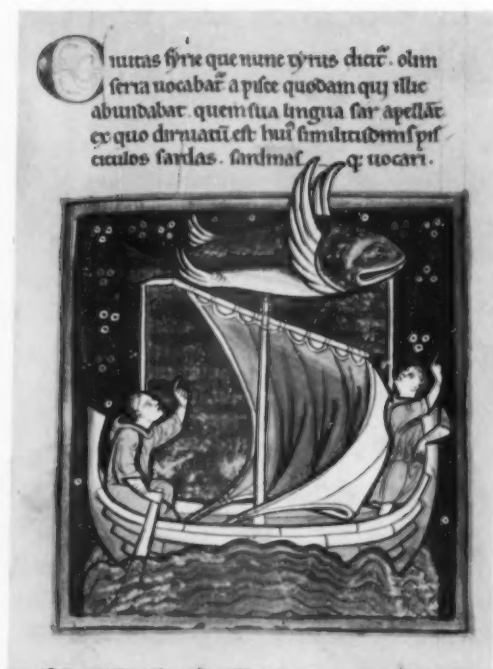 Ciuitas syrie que nunc tyrus dicit̄ . olim
serra uocabat̄ a pisce quodam qui illic
abundabat . quem sua lingua sar apellāt
ex quo diriuatū est hui᾿ similitudinis pis
ciculos sardas . sardinas q; uocari .